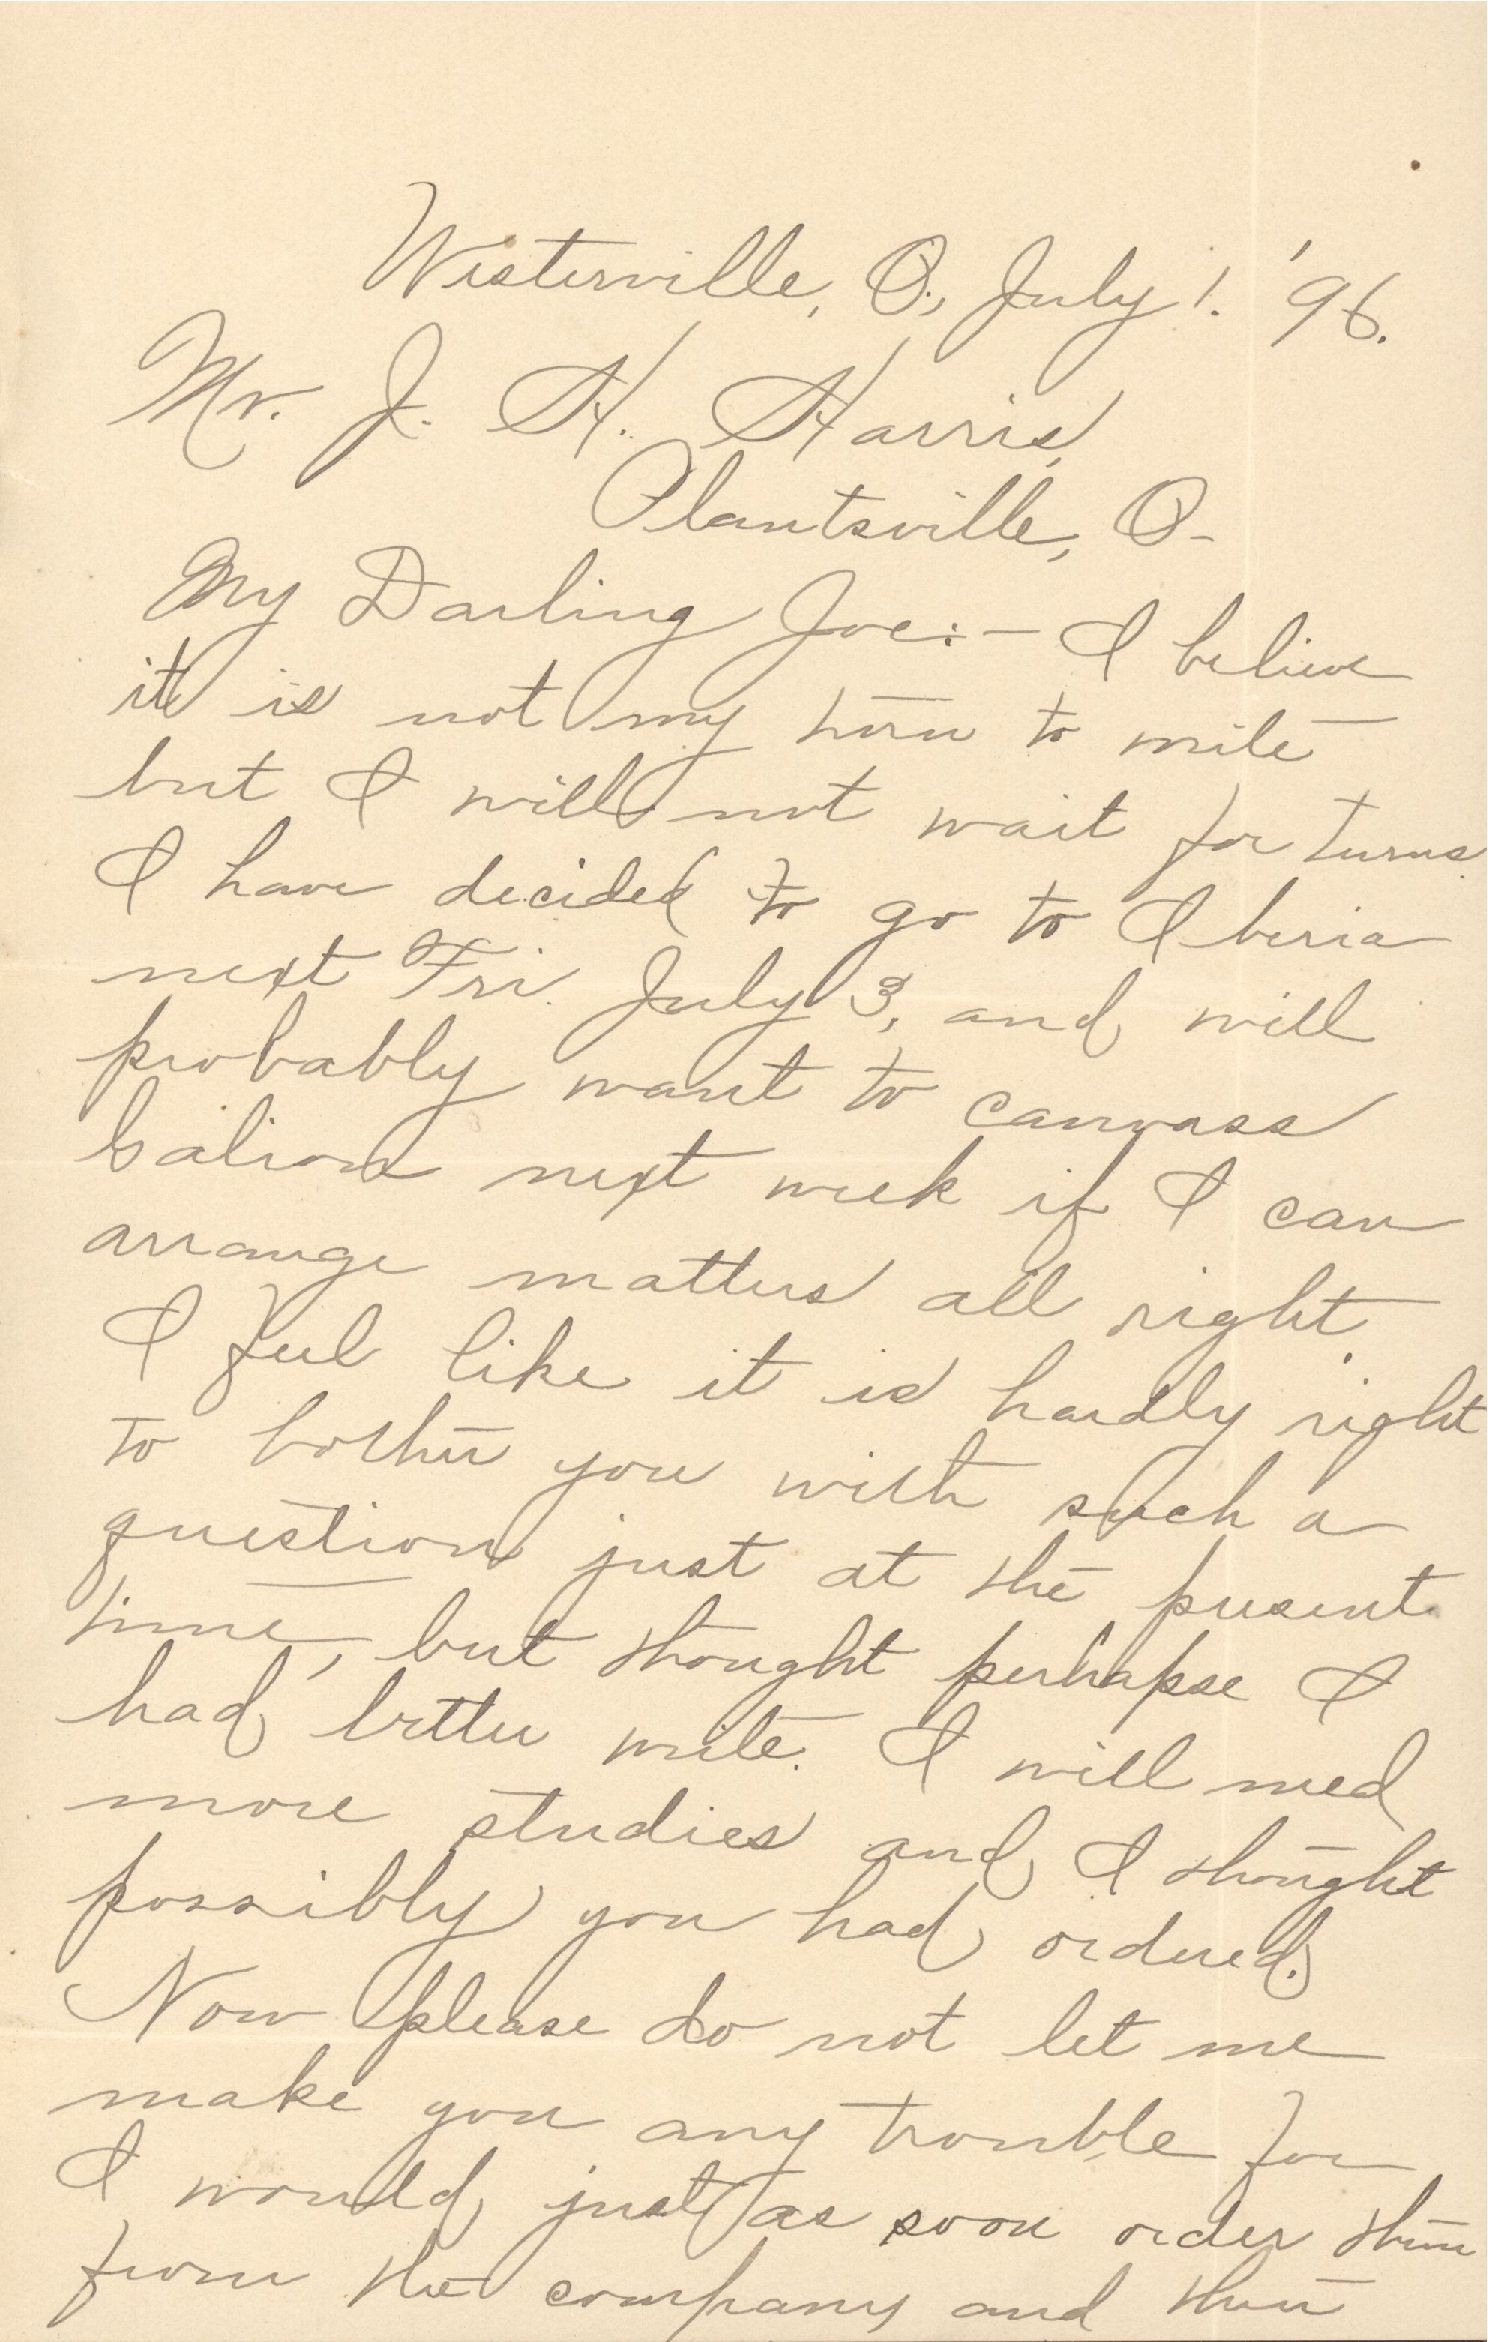 Westerville, O., July 1. '96.
Mr. J. H. Harris,
Plantsville, O-
My Darling Joe:- I believe
it is not my turn to write
but I will not wait for turns.
I have decided to go to Iberia
next Fri. July 3, and will
probably want to canvass
Galion next week if I can
arrange matters all right.
I feel like it is hardly right
to bother you with such a
question just at the present
time, but thought perhapse I
had better write. I will need
more studies and I thought
possibly you had ordered.
Now please do not let me
make you any trouble for
I would just as soon order them
from the company and then